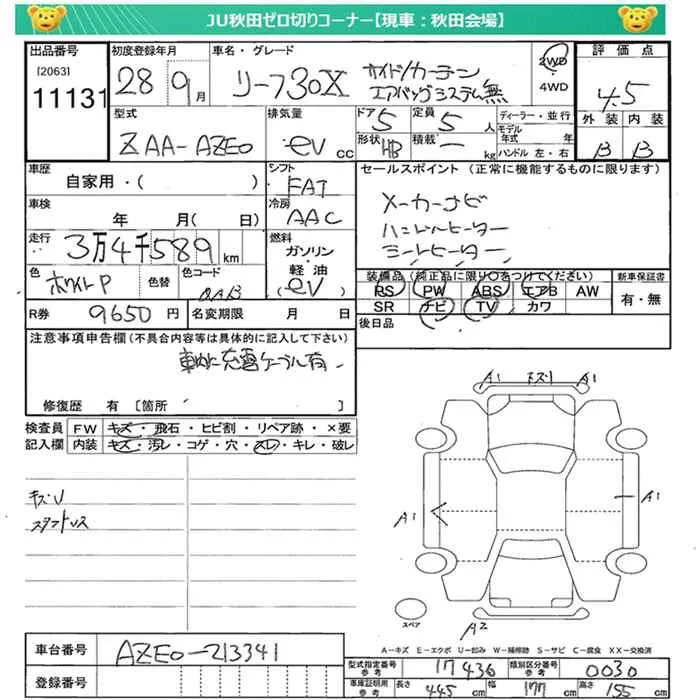 JU秋田ゼロ切りコーナー【現車：秋田会場】
出品番号 初度登録年月 車名・グレード 評価点
[2063]
11131
28 9月 リーフ30X サイド/カーテンエアバッグシステム無 2WD 4WD 4.5
外装 内装
B B
型式 排気量 ドア 5 定員 5人 ディーラー・並行
ZAA-AZE0 eV cc 形状 HB 積載 ー kg モデル年式 年
ハンドル 左・右
車歴 シフト セールスポイント(正常に機能するものに限ります)
自家用・( ) FAT
車検 冷房
年 月(日) AAC
メーカーナビ
ハンドルヒーター
シートヒーター
走行 燃料
3万4千589km ガソリン・軽油(eV)
色 色替 色コード
ホワイトP QAB
装備品(純正品に限り○をつけてください) 新車保証書
RS PW ABS エアB AW 有・無
SR ナビ TV カワ
R券 9650円 名変期限 月 日
後日品
注意事項申告欄(不具合内容等は具体的に記入して下さい)
車内に充電ケーブル有
修復歴 有 [箇所 ]
検査員 FW キズ・飛石・ヒビ割・リペア跡・×要
記入欄 内装 キズ・汚レ・コゲ・穴・スレ・キレ・破レ
A1 下スリ A1
キズU
スタットレス
A1
A1
スペア
A2
A-キズ E-エクボ U-凹み W-補修跡 S-サビ C-腐食 XX-交換済
車台番号 AZE0-213341
登録番号
型式指定番号 参考 17436 類別区分番号 参考 0030
車庫証明用 参考 長さ 445cm 幅 177cm 高さ 155cm